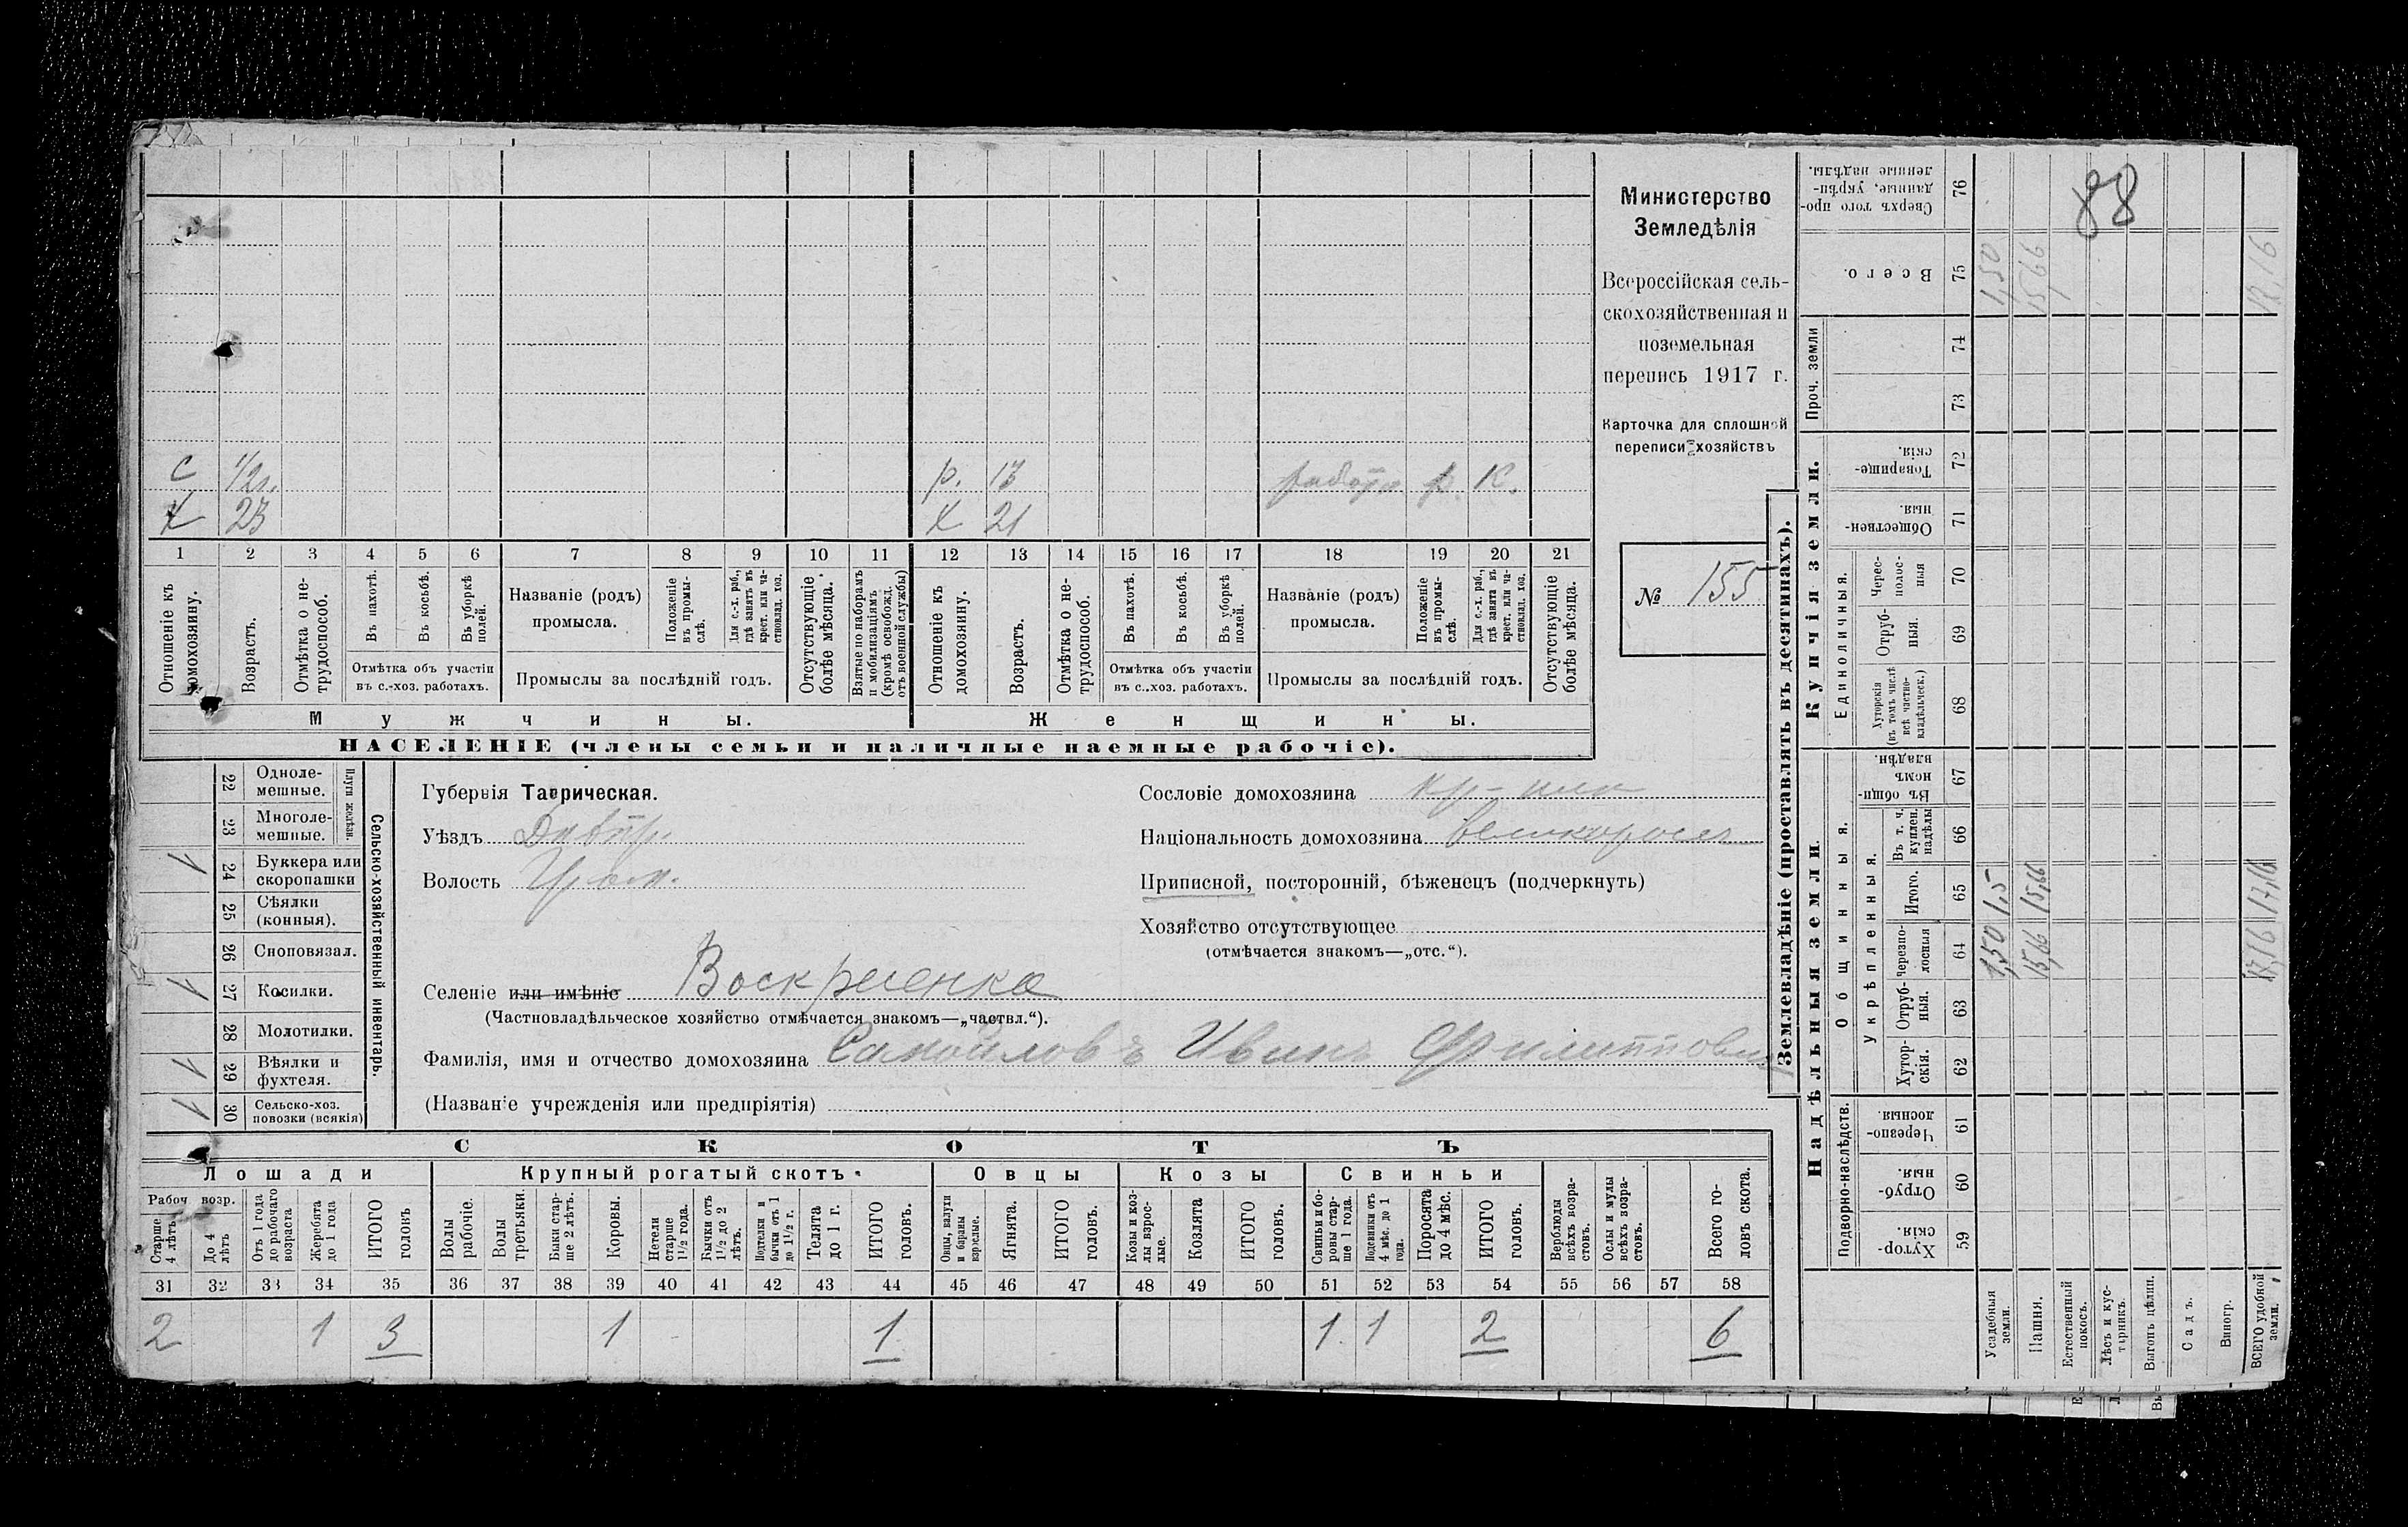 88
Министерство
Земледѣлія
Всероссійская сель-
скохозяйственная и
поземельная
перепись 1917 г.
Карточка для сплошной
переписи хозяйствъ
№ 155
с 1/2 г. р. 13 работн р. К.
х 23 х 21
1 2 3 4 5 6 7 8 9 10 11 12 13 14 15 16 17 18 19 20 21
Отношеніе къ домохозяину.
Возрастъ.
Отмѣтка о не-трудоспособ.
Въ пахотѣ.
Въ косьбѣ.
Въ уборкѣ полей.
Отмѣтка объ участіи
въ с.-хоз. работахъ.
Названіе (родъ)
промысла.
Положеніе въ промы-слѣ.
Для с.-х. раб., гдѣ занятъ въ крест. или ча-стновлад. хоз.
Промыслы за послѣдній годъ.
Отсутствующіе болѣе мѣсяца.
Взятые по наборамъ и мобилизаціямъ (кромѣ освобожд. отъ военной службы)
Отношеніе къ домохозяину.
Возрастъ.
Отмѣтка о не-трудоспособ.
Въ пахотѣ.
Въ косьбѣ.
Въ уборкѣ полей.
Отмѣтка объ участіи
въ с..хоз. работахъ.
Названіе (родъ)
промысла.
Положеніе въ промы-слѣ.
Для с.-х. раб., гдѣ занята въ крест. или ча-стновлад. хоз.
Промыслы за послѣдній годъ.
Отсутствующіе болѣе мѣсяца.
Мужчины. Женщины.
НАСЕЛЕНІЕ (члены семьи и наличные наемные рабочіе).
Сельско-хозяйственный инвентарь.
Плуги желѣзн.
22 Одноле-мешные.
23 Многоле-мешные.
1 24 Буккера или скоропашки
25 Сѣялки (конныя).
26 Сноповязал.
1 27 Косилки.
28 Молотилки.
1 29 Вѣялки и фухтеля.
1 30 Сельско-хоз. повозки (всякія)
Губернія Таврическая.
Уѣздъ Днѣпр.
Волость
Сословіе домохозяина кр-нин
Національность домохозяина великороссъ
Приписной, посторонній, бѣженецъ (подчеркнуть)
Хозяйство отсутствующее
(отмѣчается знакомъ—„отс.“).
Селеніе или имѣніе Воскресенка
(Частновладѣльческое хозяйство отмѣчается знакомъ—„частвл.“).
Фамилія, имя и отчество домохозяина Самойловъ Иванъ Филиппович
(Названіе учрежденія или предпріятія)
СКОТЪ
Лошади Крупный рогатый скотъ Овцы Козы Свиньи
Рабоч возр.
Старше 4 лѣтъ
До 4 лѣтъ
Отъ 1 года до рабочаго возраста
Жеребята до 1 года
ИТОГО головъ
Волы рабочіе.
Волы третьяки.
Быки стар-ше 2 лѣтъ.
Коровы.
Нетели старше 1½ года.
Бычки отъ 1½ до 2 лѣтъ.
Подтелки и бычки отъ 1 до 1½ г.
Телята до 1 г.
ИТОГО головъ.
Овцы, валухи и бараны взрослые.
Ягнята.
ИТОГО головъ.
Козы и коз-лы взрос-лые.
Козлята
ИТОГО головъ.
Свиньи и бо-ровы стар-ше 1 года.
Подсвинки отъ 4 мѣс. до 1 года.
Поросята до 4 мѣс.
ИТОГО головъ.
Верблюды всѣхъ возра-стовъ.
Ослы и мулы всѣхъ возра-стовъ.
Всего го-ловъ скота.
31 32 33 34 35 36 37 38 39 40 41 42 43 44 45 46 47 48 49 50 51 52 53 54 55 56 57 58
2 1 3 1 1 1 1 2 6
Землевладѣніе (проставлять въ десятинахъ).
Надѣльныя земли.
Подворно-наслѣдств.
Хутор-скія. 59
Отруб-ныя. 60
Черезпо-лосныя 61
Общинныя.
Укрѣпленныя.
Хутор-скія. 62
Отруб-ныя. 63
Черезпо-лосныя 64
Итого. 65
Въ т. ч. куплен. надѣлы 66
Въ общи-номъ владѣн. 67
Купчія земли.
Единоличныя.
Хуторскія (въ томъ числѣ всѣ частно-владѣльческ.) 68
Отруб-ныя. 69
Черес-полос-ныя 70
Обществен-ныя. 71
Товарище-скія. 72
Проч. земли
73 74
Всего. 75
Сверхъ того про-данные, укрѣп-ленные надѣлы. 76
Усадебныя земли. 1,50 1,5 1,50
Пашня. 15,66 15,66 15,66
Естественный покосъ.
Лѣсъ и кус-тарникъ.
Выгонъ цѣлин.
Садъ.
Виногр.
ВСЕГО удобной земли. 17,16 17,16 17,16